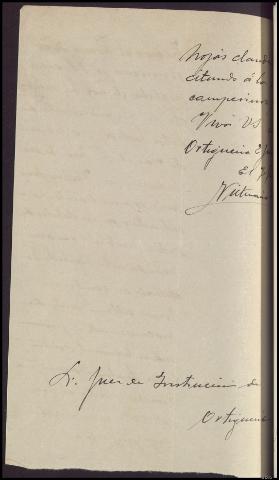 hojas cland
citando á lo
campesinos
Viva VS
Ortigueira
El
Sr. Juez de Instrucción de
Ortigueira